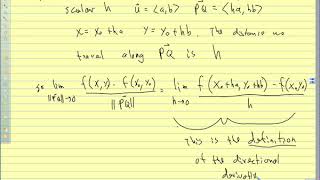 scalar h  u⃗ = <a,b>  PQ⃗ = <ha, hb>
x = x₀ + ha  y = y₀ + hb. The distance we
travel along PQ⃗ is h
so lim ||PQ⃗||→0 f(x,y) - f(x₀,y₀) / ||PQ⃗|| = lim h→0 f(x₀+ha, y₀+hb) - f(x₀,y₀) / h
This is the definition
of the directional
derivative